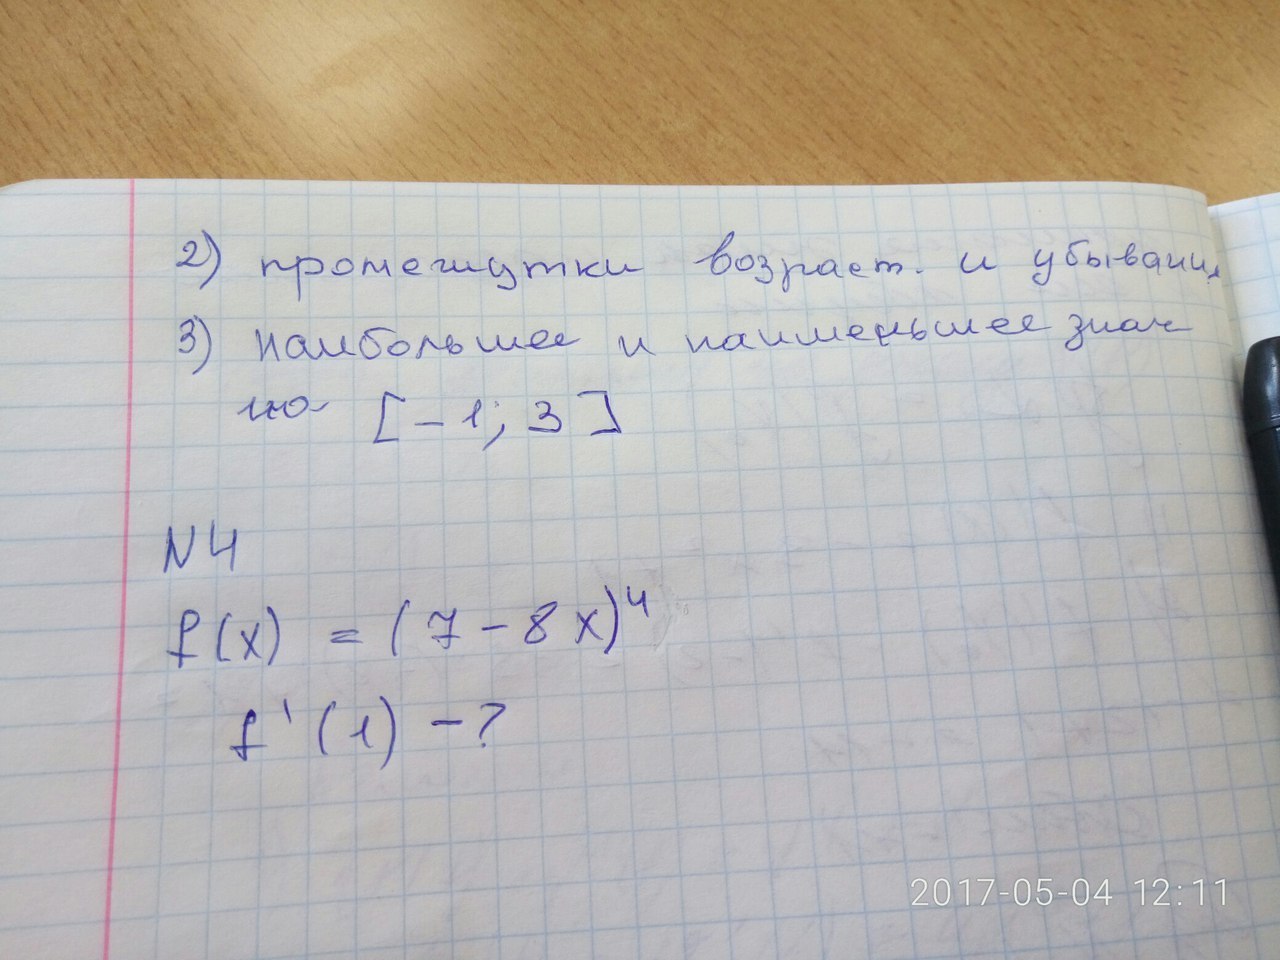 2) промежутки возраст. и убывания
3) наибольшее и наименьшее знач
на [-1; 3]
N4
f(x) = (7-8x)⁴
f'(1) -?
2017-05-04 12:11